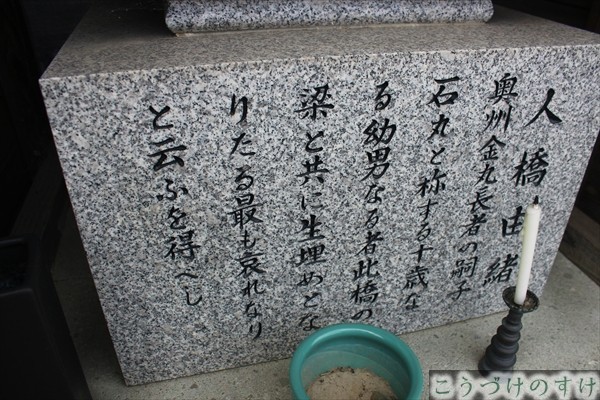 人橋由緒
奥州金丸長者の嗣子
石丸と称する十歳な
る幼男なる者此橋の
梁と共に生埋めとな
りたる最も哀れなり
と云ふを得へし
こうづけのすけ